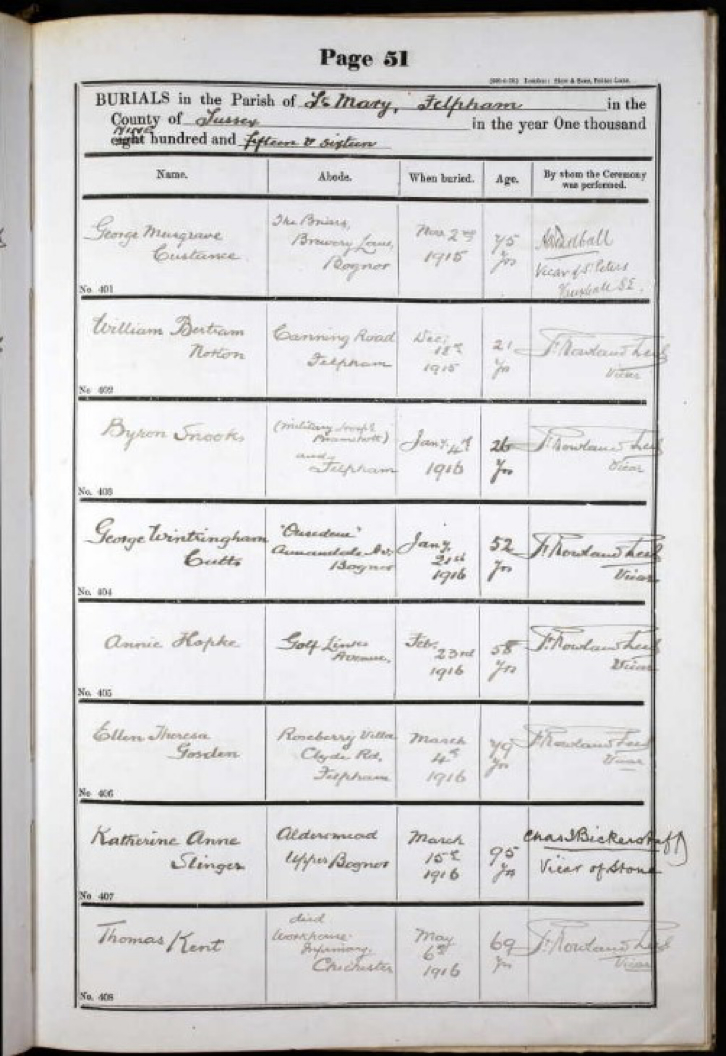 Page 51
BURIALS in the Parish of St Mary, Felpham in the
County of Sussex in the year One thousand
Nine
eight hundred and fifteen & sixteen
Name. Abode. When buried. Age. By whom the Ceremony was performed.
George Musgrave
Custance
No. 401
The Briars,
Brewery Lane,
Bognor
Nov. 2nd
1915
75
yrs
Vicar of St Peters
Vauxhall S.E.
William Bertram
Notton
No. 402
Canning Road
Felpham
Dec.
18th
1915
21
yrs
Rowland
Vicar
Byron Snooks
No. 403
(Military Hospl.
Bramshott)
and
Felpham
Jany. 4th
1916
26
yrs
Rowland
Vicar
George Wintringham
Cutts
No. 404
"Ousedene"
Annandale Av.
Bognor
Jany.
21st
1916
52
yrs
Rowland
Vicar
Annie Hopke
No. 405
Golf Links
Avenue,
Feb.
23rd
1916
58
yrs
Rowland
Vicar
Ellen Theresa
Gosden
No. 406
Roseberry Villa
Clyde Rd,
Felpham
March
4th
1916
79
yrs
Rowland
Vicar
Katherine Anne
Slinger
No. 407
Aldermead
Upper Bognor
March
15th
1916
95
yrs
Chas S Bickerstaff
Vicar of Stone
Thomas Kent
No. 408
died
Workhouse
Infirmary,
Chichester
May
6th
1916
69
yrs
Rowland
Vicar